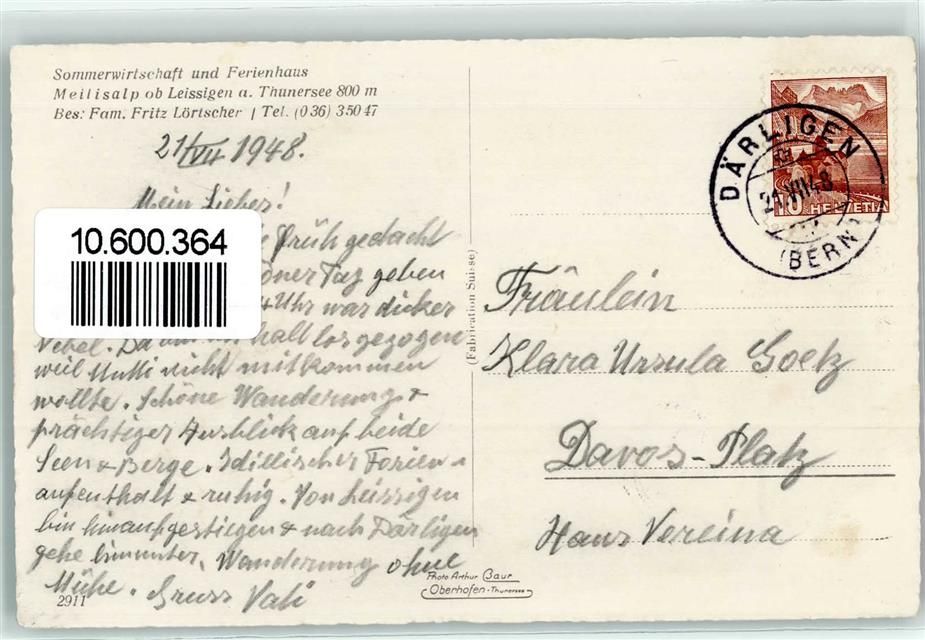 Sommerwirtschaft und Ferienhaus
Meilisalp ob Leissigen a. Thunersee 800 m
Bes: Fam. Fritz Lörtscher | Tel. (0 36) 3 50 47
21/VII 1948.
Mein Lieber!
Früh gedacht
Tag geben
4 Uhr war dicker
Nebel. Da los gezogen
weil Mutti nicht mitkommen
wollte. Schöne Wanderung &
prächtiger Ausblick auf beide
Seen & Berge. Idillischer Ferien-
aufenthalt & ruhig. Von Leissigen
bin hinaufgestiegen & nach Därligen
gehe hinunter. Wanderung ohne
Mühe. Gruss Vati
2911
10.600.364
(Fabrication Suisse)
Photo Arthur Baur
Oberhofen-Thunersee
DÄRLIGEN
(BERN)
21.VII.48
10 HELVETIA
Fräulein
Klara Ursula Goetz
Davos-Platz
Haus Vereina